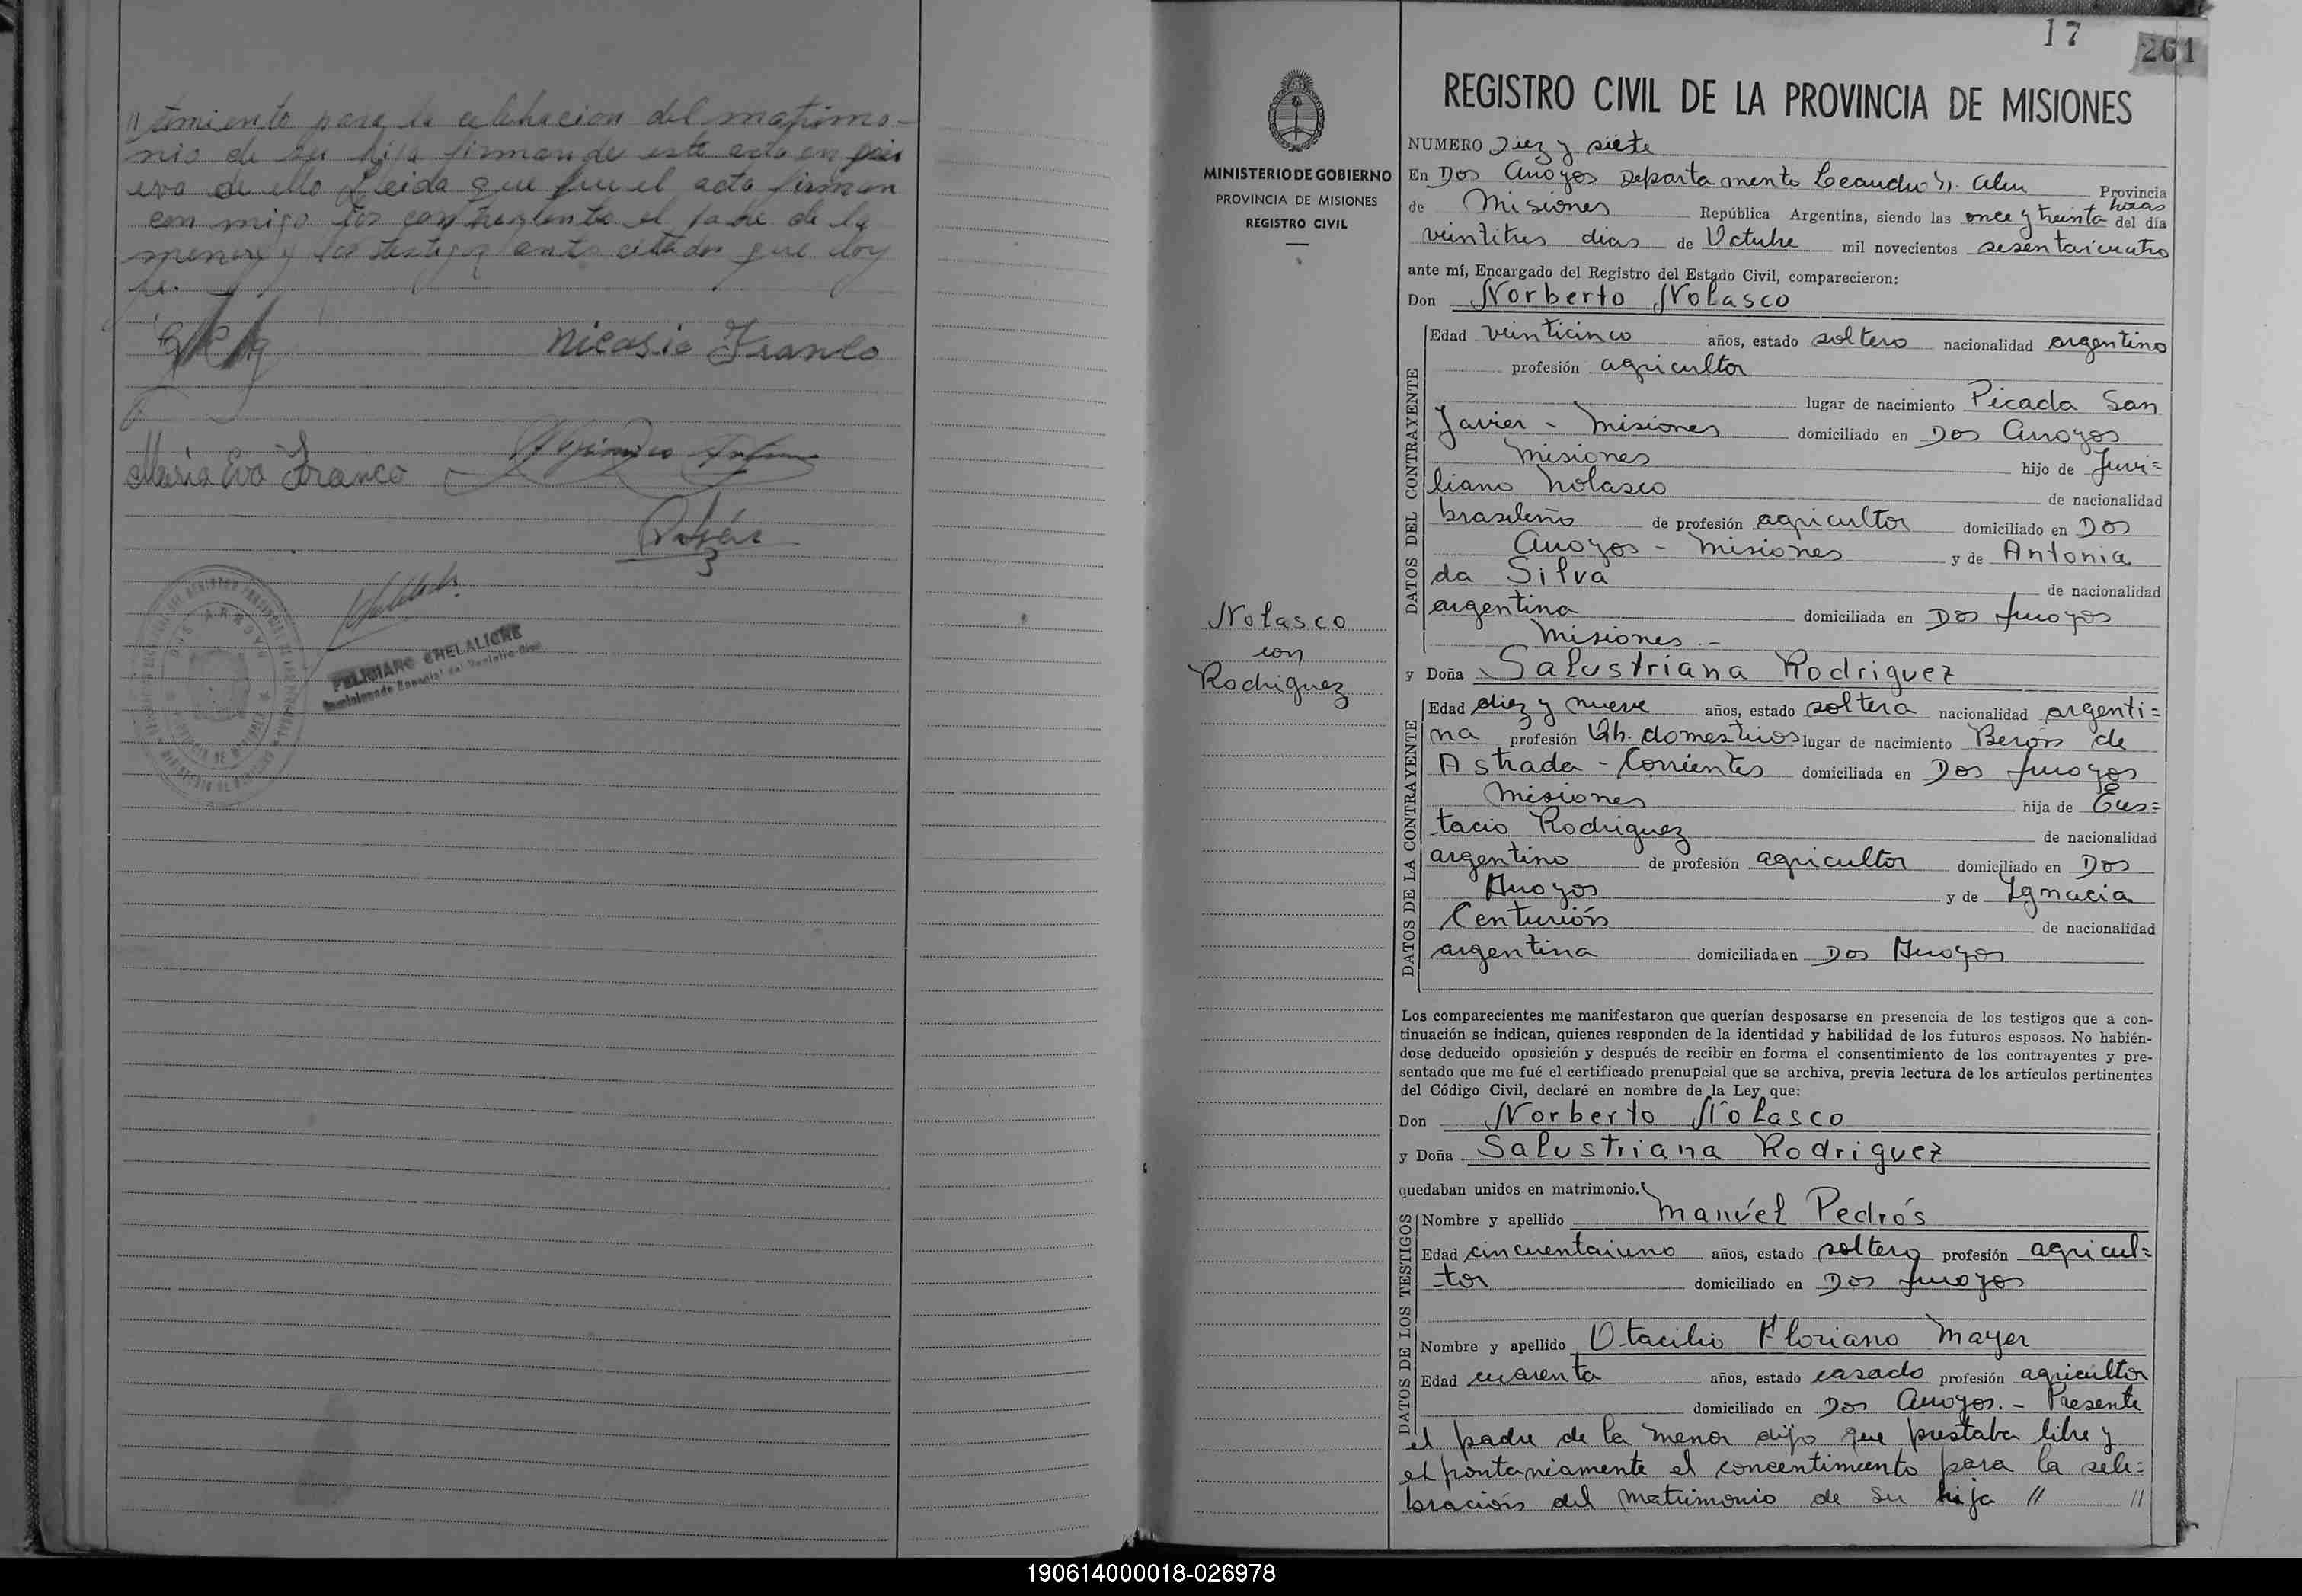 // timiento para la celebracion del matrimo-
nio de su hija firmando este acta en prue
eva de ello Leida que fue el acta firman
con migo los contrayente el padre de la
menor y los testigos antes citados que doy
fe.
Nicasio Franco
Maria Eva Franco
DOS ARROYOS
FELICIANO CHELALICHE
17
261
REGISTRO CIVIL DE LA PROVINCIA DE MISIONES
MINISTERIO DE GOBIERNO
PROVINCIA DE MISIONES
REGISTRO CIVIL
NUMERO Diez y siete
En Dos Arroyos Departamento Leandro N. Alem Provincia
de Misiones República Argentina, siendo las once y treinta horas del día
veintitres dias de Octubre mil novecientos sesentaicuatro
ante mí, Encargado del Registro del Estado Civil, comparecieron:
Don Norberto Nolasco
DATOS DEL CONTRAYENTE
Edad veinticinco años, estado soltero nacionalidad argentino
profesión agricultor
lugar de nacimiento Picada San
Javier - Misiones domiciliado en Dos Arroyos
Misiones hijo de Juvi=
liano Nolasco de nacionalidad
brasileño de profesión agricultor domiciliado en Dos
Arroyos - Misiones y de Antonia
da Silva de nacionalidad
argentina domiciliada en Dos Arroyos
Misiones.-
Nolasco
con
Rodriguez
y Doña Salustriana Rodriguez
DATOS DE LA CONTRAYENTE
Edad diez y nueve años, estado soltera nacionalidad argenti=
na profesión Qh. domesticos lugar de nacimiento Berón de
Astrada - Corrientes domiciliada en Dos Arroyos
Misiones hija de Eus=
tacio Rodriguez de nacionalidad
argentino de profesión agricultor domiciliado en Dos
Arroyos y de Ignacia
Centurión de nacionalidad
argentina domiciliada en Dos Arroyos
Los comparecientes me manifestaron que querían desposarse en presencia de los testigos que a con-
tinuación se indican, quienes responden de la identidad y habilidad de los futuros esposos. No habién-
dose deducido oposición y después de recibir en forma el consentimiento de los contrayentes y pre-
sentado que me fué el certificado prenupcial que se archiva, previa lectura de los artículos pertinentes
del Código Civil, declaré en nombre de la Ley que:
Don Norberto Nolasco
y Doña Salustriana Rodriguez
quedaban unidos en matrimonio.
DATOS DE LOS TESTIGOS
Nombre y apellido Manuel Pedrós
Edad cincuentaiuno años, estado soltero profesión agricul=
tor domiciliado en Dos Arroyos
Nombre y apellido Otacilio Floriano Mayer
Edad cuarenta años, estado casado profesión agricultor
domiciliado en Dos Arroyos. - Presente
el padre de la menor dijo que prestaba libre y
espontaniamente el concentimiento para la sele=
bración del matrimonio de su hija // //
190614000018-026978